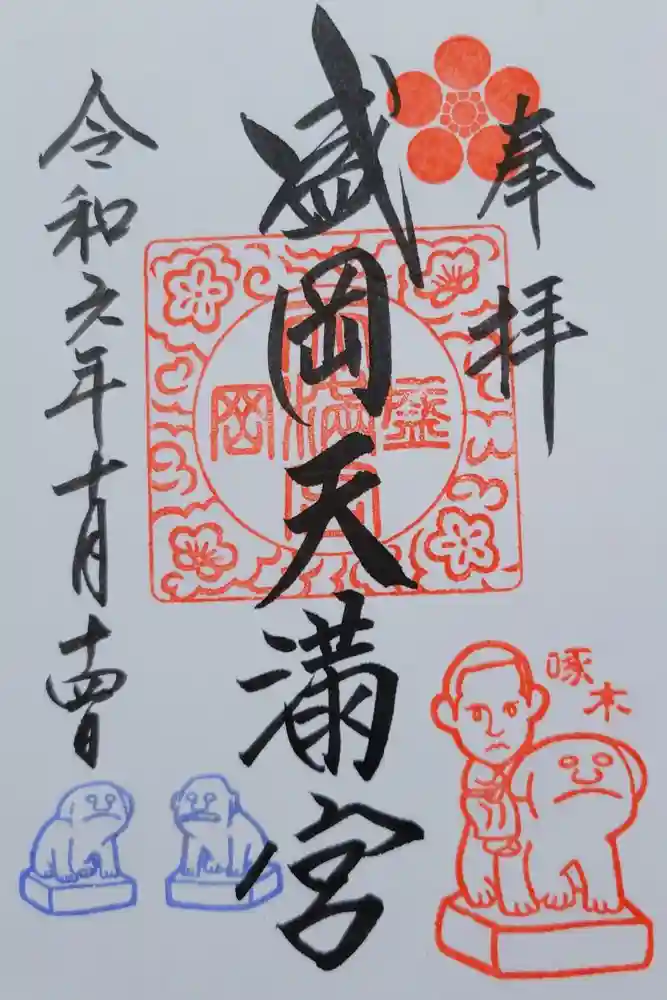 奉拝
盛岡天満宮
盛岡
天満宮
令和六年十月十四日
啄木